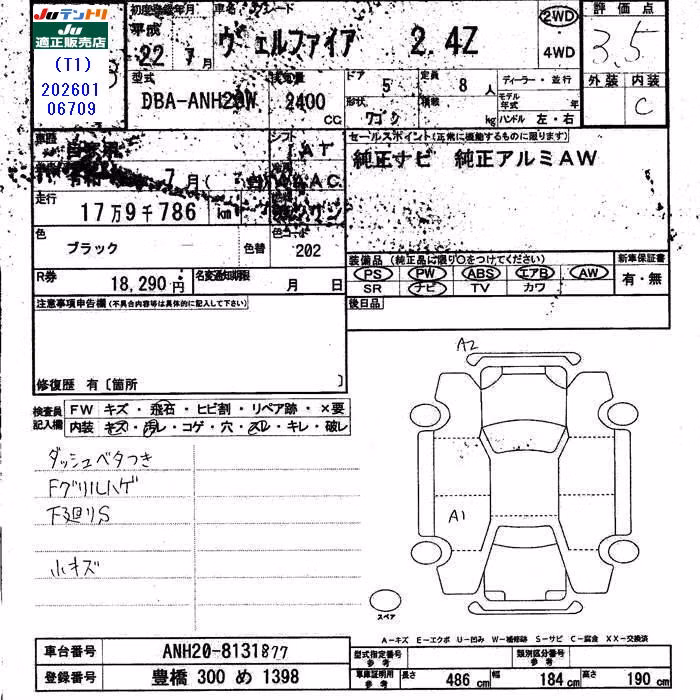 Juテントリ
Ju
適正販売店
(T1)
202601
06709
初度登録年月
車名
グレード
平成
22年7月
ヴェルファイア 2.4Z
2WD
4WD
評価点
3.5
外装 内装
C
型式
DBA-ANH20W
2400
CC
ドア
5
形状
ワゴン
定員
8人
積載
kg
ディーラー・並行
モデル年式
年
ハンドル 左・右
車歴
自家用
シフト
AT
7月
走行
17万9千786
km
色
ブラック
色替
色コード
202
セールスポイント(正常に機能するものに限ります)
純正ナビ 純正アルミAW
装備品(純正品に限り○をつけてください)
PS PW ABS エアB AW
SR ナビ TV カワ
新車保証書
有・無
後日品
R券
18,290円
名変通知期限
月 日
注意事項申告欄(不具合内容等は具体的に記入して下さい)
修復歴 有〔箇所 〕
検査員記入欄
FW キズ・飛石・ヒビ割・リペア跡・×要
内装 キズ・汚レ・コゲ・穴・スレ・キレ・破レ
ダッシュベタつき
Fグリルハゲ
下廻りS
小キズ
A2
A1
スペア
A-キズ E-エクボ U-凹み W-補修跡 S-サビ C-腐食 XX-交換済
車台番号 ANH20-8131877
登録番号 豊橋 300 め 1398
型式指定番号 参考
類別区分番号 参考
車庫証明用 参考
長さ 486cm 幅 184cm 高さ 190cm